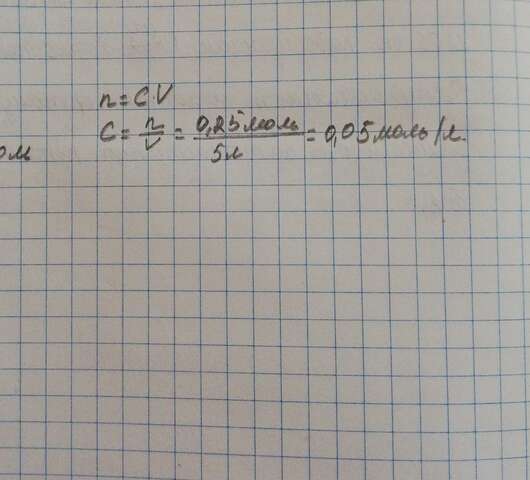 n = C V
C = n/V = 0,25 моль/5л = 0,05 моль/л.